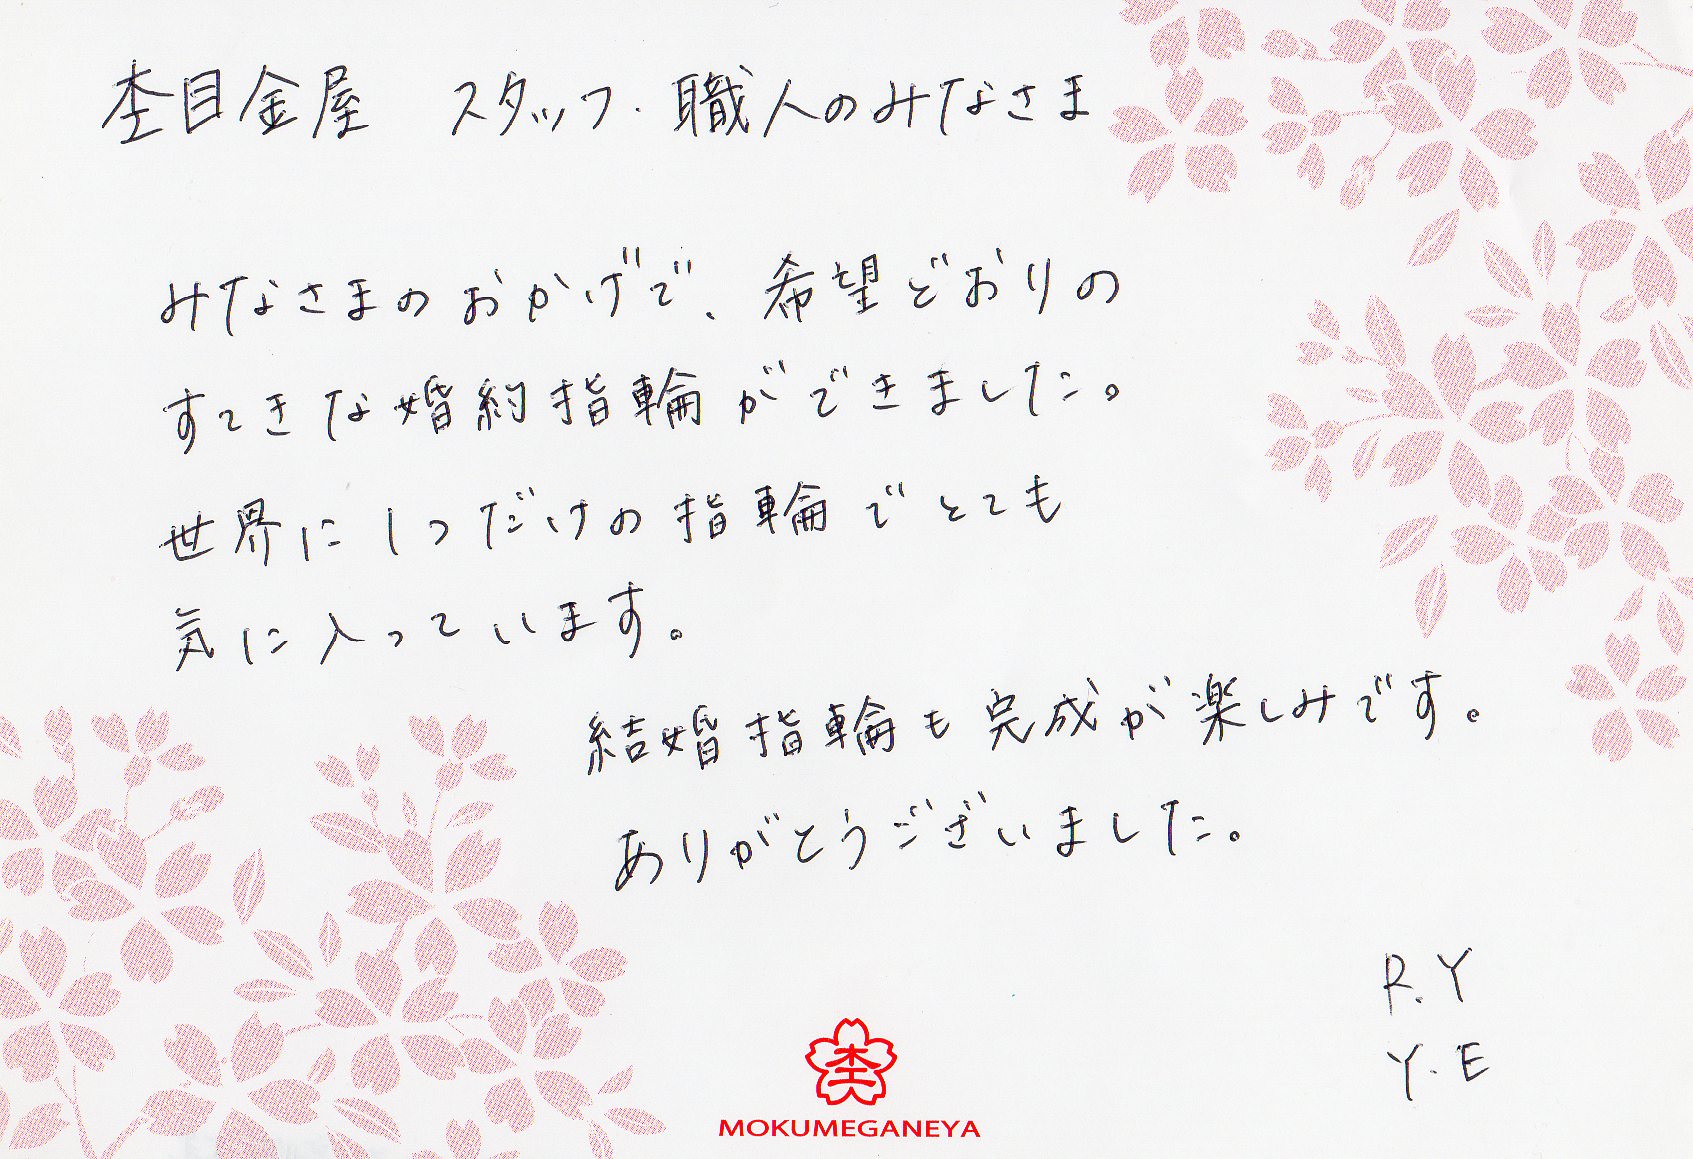 杢目金屋　スタッフ・職人のみなさま
みなさまのおかげで、希望どおりの
すてきな婚約指輪ができました。
世界に1つだけの指輪でとても
気に入っています。
結婚指輪も完成が楽しみです。
ありがとうございました。
R.Y
Y.E
杢
MOKUMEGANEYA